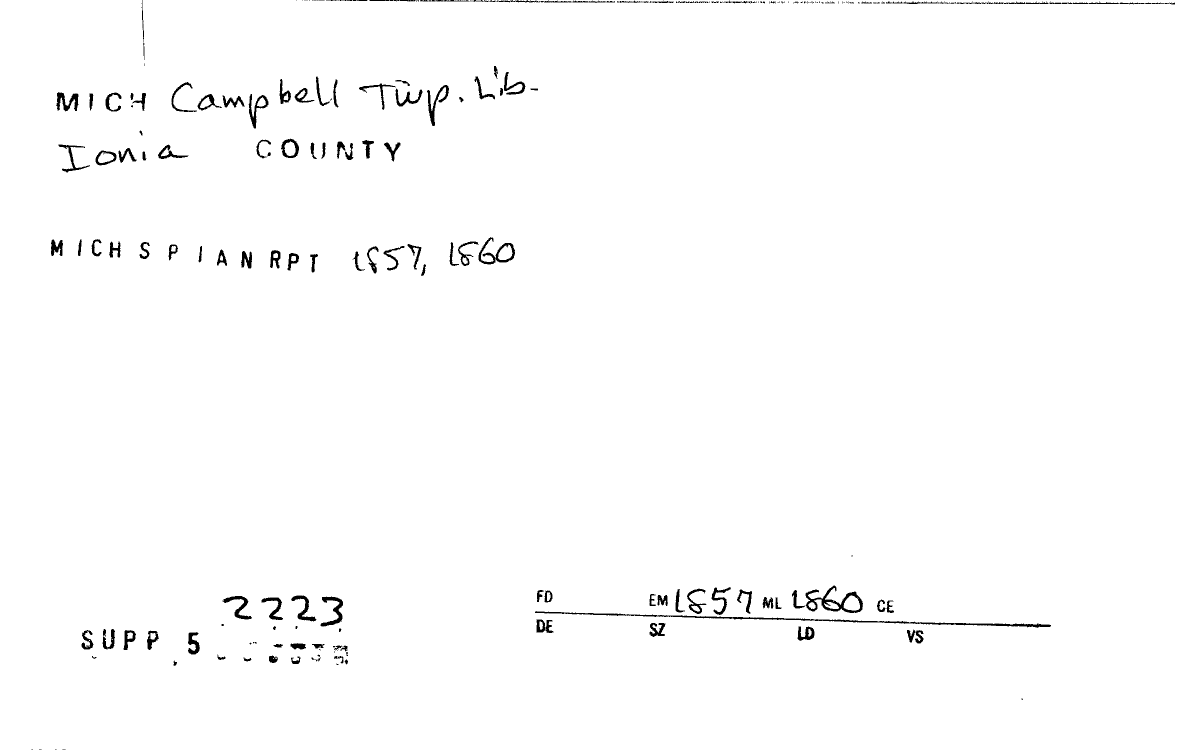 MICH Campbell Twp. Lib.
Ionia COUNTY
MICH S P I AN RPT 1857, 1860
2223
SUPP 5
FD EM 1857 ML 1860 CE
DE SZ LD VS